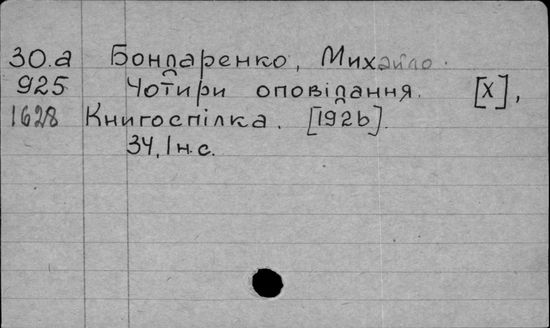 30.а Бондаренко, Михайло.
925 Чотири оповідання. [Х],
1628 Книгоспілка. [1926].
34, 1 н. с.